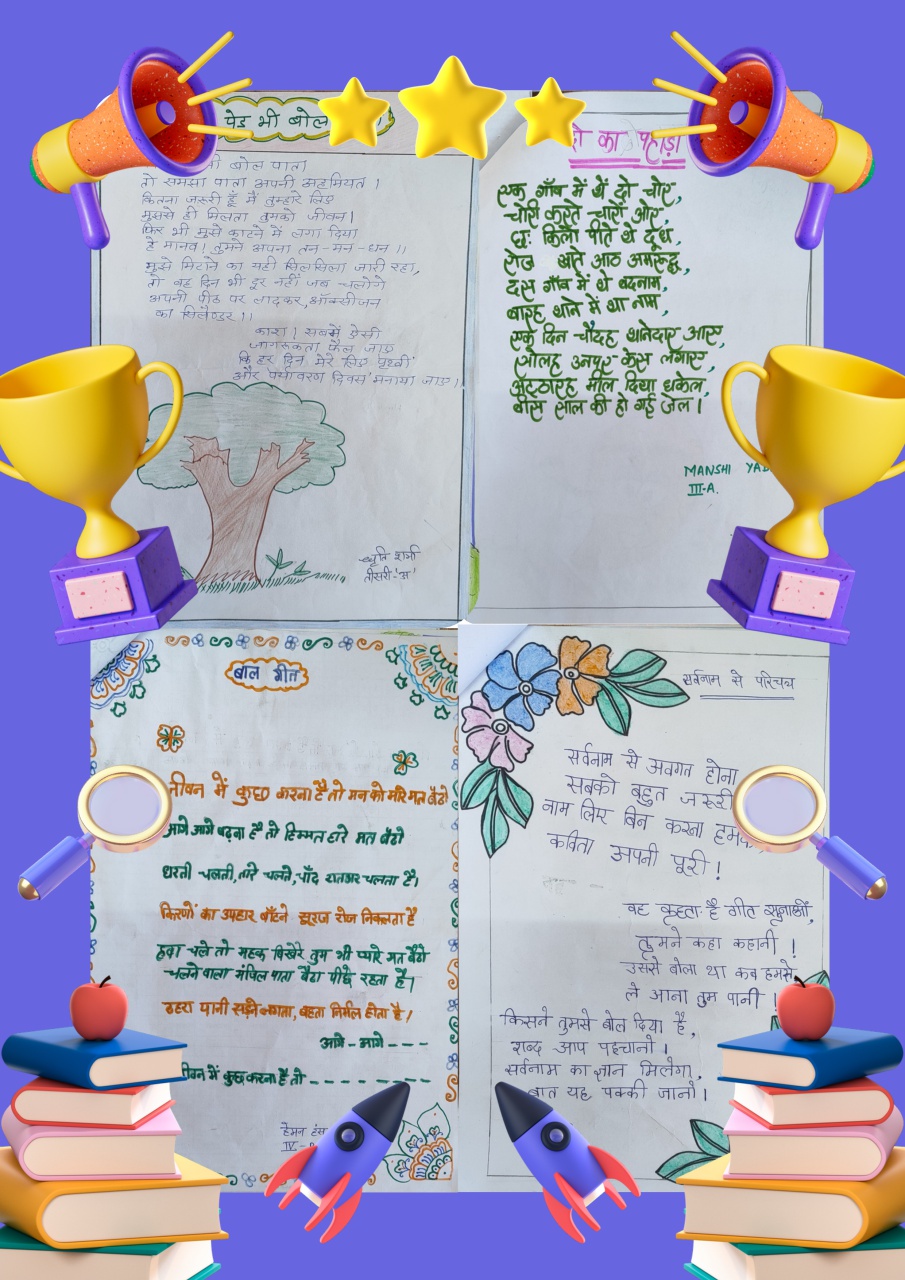 पेड़ भी बोल
भी बोल पाता
तो समझा पाता अपनी अहमियत।
कितना जरूरी हूँ मैं तुम्हारे लिए
मुझसे ही मिलता तुमको जीवन।
फिर भी मुझे काटने में लगा दिया
हे मानव! तुमने अपना तन-मन-धन।।
मुझे मिटाने का यही सिलसिला जारी रहा,
तो वह दिन भी दूर नहीं जब चलोगे
अपनी पीठ पर लादकर, ऑक्सीजन
का सिलैण्डर।।
काश! सबमें ऐसी
जागरूकता फैल जाए
कि हर दिन मेरे लिए 'पृथ्वी'
और पर्यावरण दिवस' मनाया जाए।।
शर्मा
तीसरी-'अ'
का पहाड़ा
एक गाँव में थे दो चोर,
चोरी करते चारों ओर,
छः किलो पीते थे दूध,
रोज आते आठ अमरूद,
दस गाँव में थे बदनाम,
बारह थाने में था नाम,
एक दिन चौदह थानेदार आए,
सोलह उनपर केस लगाए,
अट्ठारह मील दिया धकेल,
बीस साल की हो गई जेल।
MANSHI
III-A.
बाल गीत
जीवन में कुछ करना है तो मन को मारे मत बैठो
आगे आगे बढ़ना है तो हिम्मत हारे मत बैठो
धरती चलती, तारे चलते, चाँद रातभर चलता है।
किरणों का उपहार बाँटने सूरज रोज निकलता है
हवा चले तो महक बिखेरे तुम भी प्यारे मत बैठो
चलने वाला मंजिल पाता बैठा पीछे रहता है।
ठहरा पानी सड़ने लगता, बहता निर्मल होता है।
आगे-आगे---
जीवन में कुछ करना है तो --------
IV-
सर्वनाम से परिचय
सर्वनाम से अवगत होना
सबको बहुत जरूरी
नाम लिए बिन करना
कविता अपनी पूरी!
वह कहता है गीत सुनाओ,
तुमने कहा कहानी!
उससे बोला था कब हमसे
ले आना तुम पानी!
किसने तुमसे बोल दिया है,
शब्द आप पहचानो।
सर्वनाम का ज्ञान मिलेगा,
बात यह पक्की जानो।